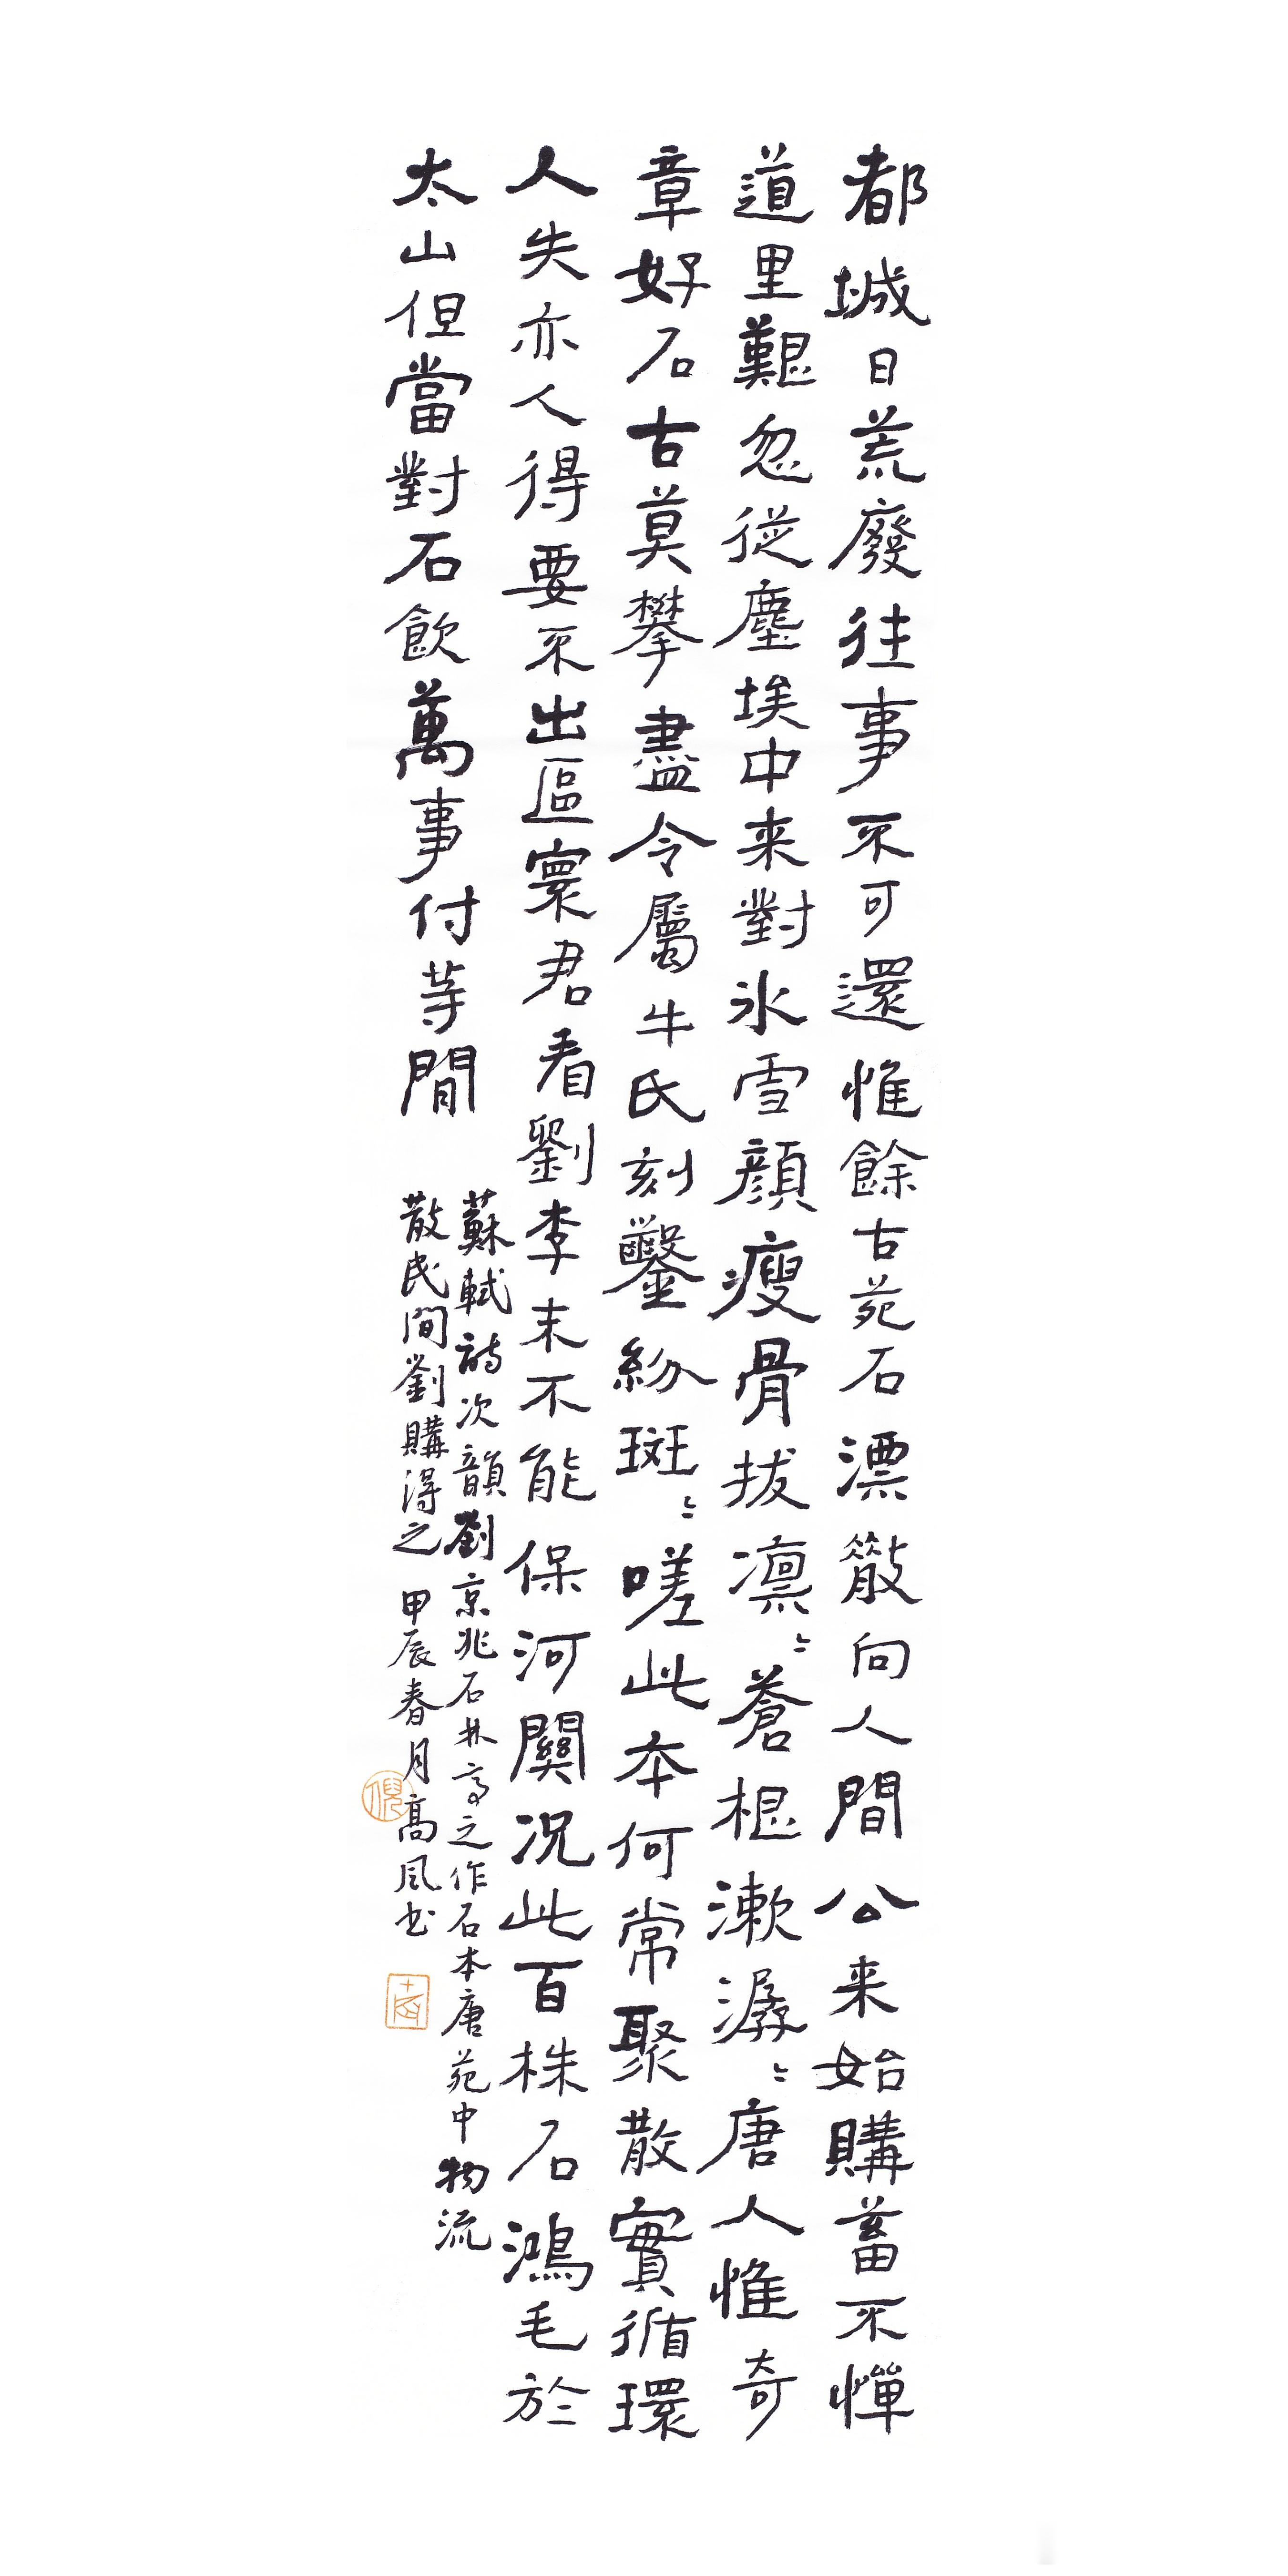 都城日荒廢往事不可還惟餘古苑石漂散向人間公来始購蓄不憚
道里艱忽從塵埃中来對冰雪顔瘦骨拔凛〻蒼根漱潺〻唐人惟奇
章好石古莫攀盡令屬牛氏刻鑿紛斑〻嗟此本何常聚散實循環
人失亦人得要不出區寰君看劉李末不能保河關況此百株石鴻毛於
太山但當對石飲萬事付等閒
蘇軾詩次韻劉京兆石林亭之作石本唐苑中物流
散民間劉購得之 甲辰春月高风书
倪